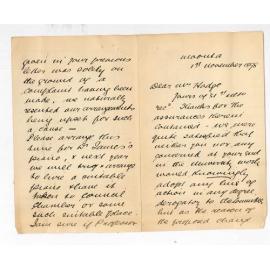 Moonta
1st November 1975
Dear Mr Hodge
Yours of 31st ulto
rec^d Thanks for the
assurances therein
contained - we were
quite satisfied that
neither you nor any
concerned at your end
in the University work
would knowingly
adopt any line of
action in any degree
derogatory to
but as the reason of
the proposed change
given in your previous
letter was solely on
the ground of a
complaint having been
made, we naturally
resented our arrangements
being upset for such
a cause -
Please arrange this
time for Dr James's
piano, & next year
we will try & arrange
to have a suitable
piano
taken to Council
Chamber or some
such suitable place.
I am sure if Professor